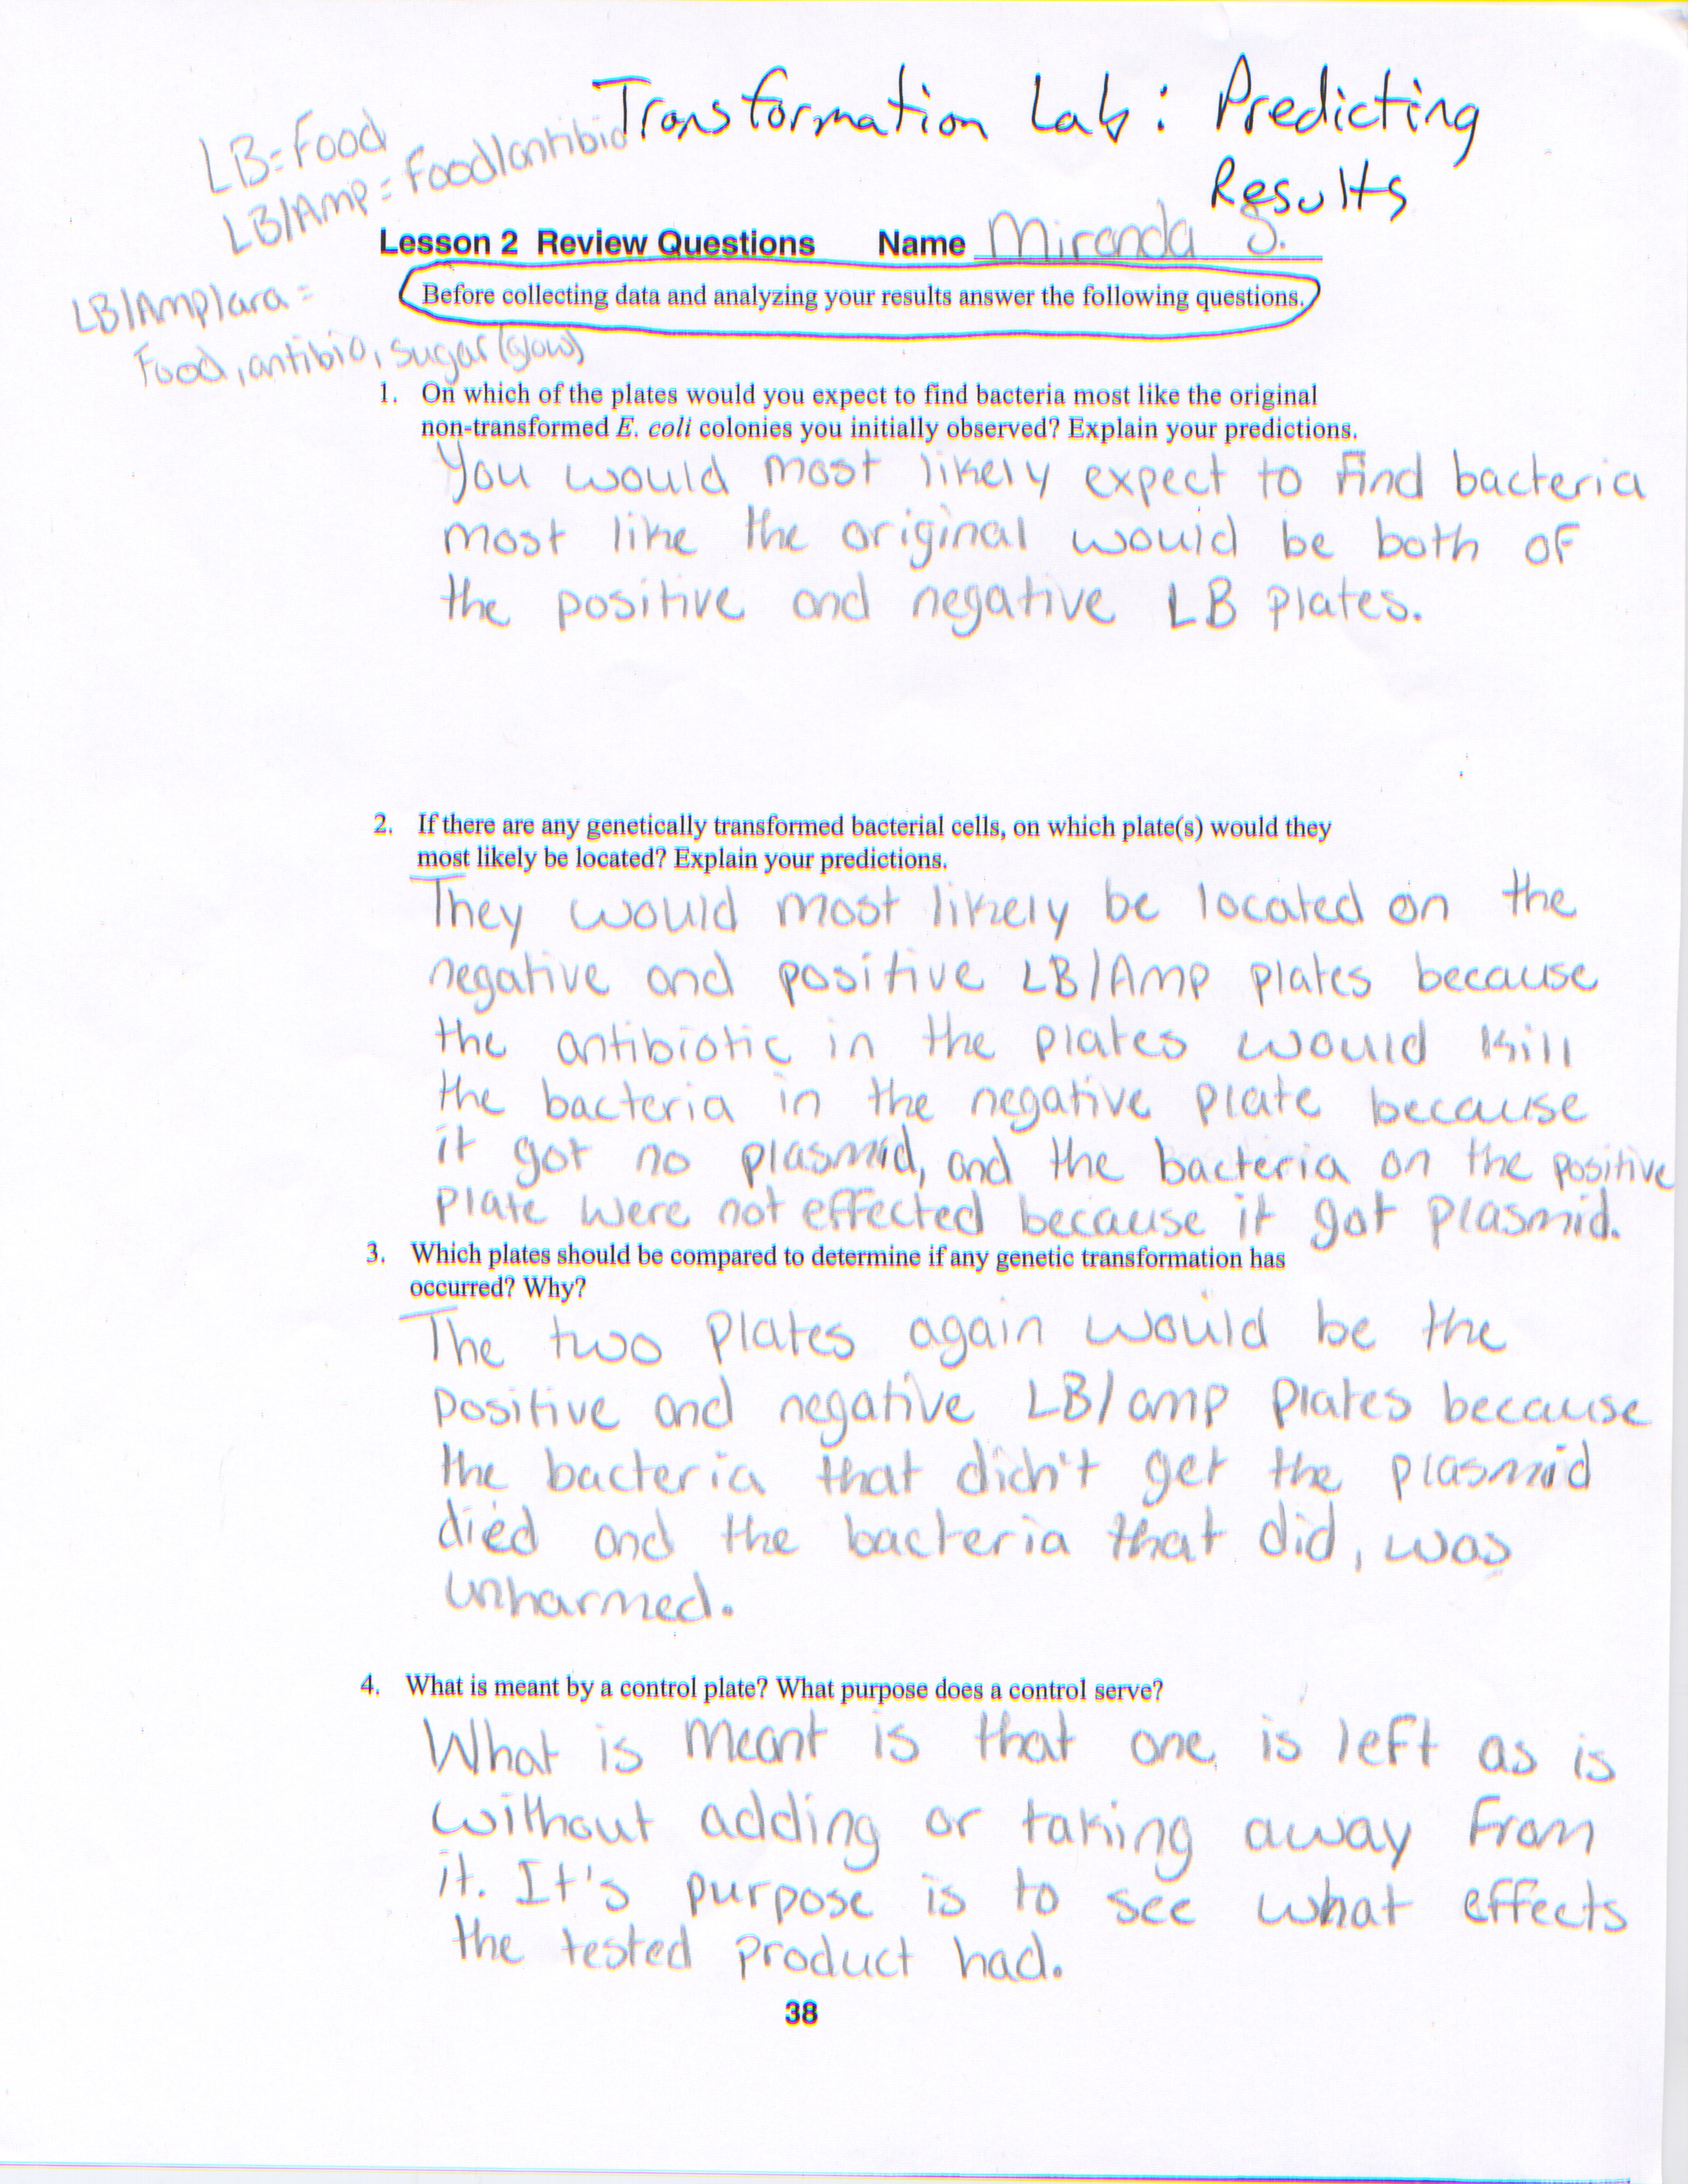 Transformation Lab: Predicting
Results
LB=Food
LB/Amp= Food/antibio
LB/Amp/ara =
Food, antibio, sugar (glow)
Lesson 2 Review Questions Name Miranda S.
Before collecting data and analyzing your results answer the following questions.
1. On which of the plates would you expect to find bacteria most like the original
non-transformed E. coli colonies you initially observed? Explain your predictions.
You would most likely expect to find bacteria
most like the original would be both of
the positive and negative LB plates.
2. If there are any genetically transformed bacterial cells, on which plate(s) would they
most likely be located? Explain your predictions.
They would most likely be located on the
negative and positive LB/Amp plates because
the antibiotic in the plates would kill
the bacteria in the negative plate because
it got no plasmid, and the bacteria on the positive
plate were not effected because it got plasmid.
3. Which plates should be compared to determine if any genetic transformation has
occurred? Why?
The two plates again would be the
positive and negative LB/amp plates because
the bacteria that didn't get the plasmid
died and the bacteria that did, was
unharmed.
4. What is meant by a control plate? What purpose does a control serve?
What is meant is that one is left as is
without adding or taking away from
it. It's purpose is to see what effects
the tested product had.
38